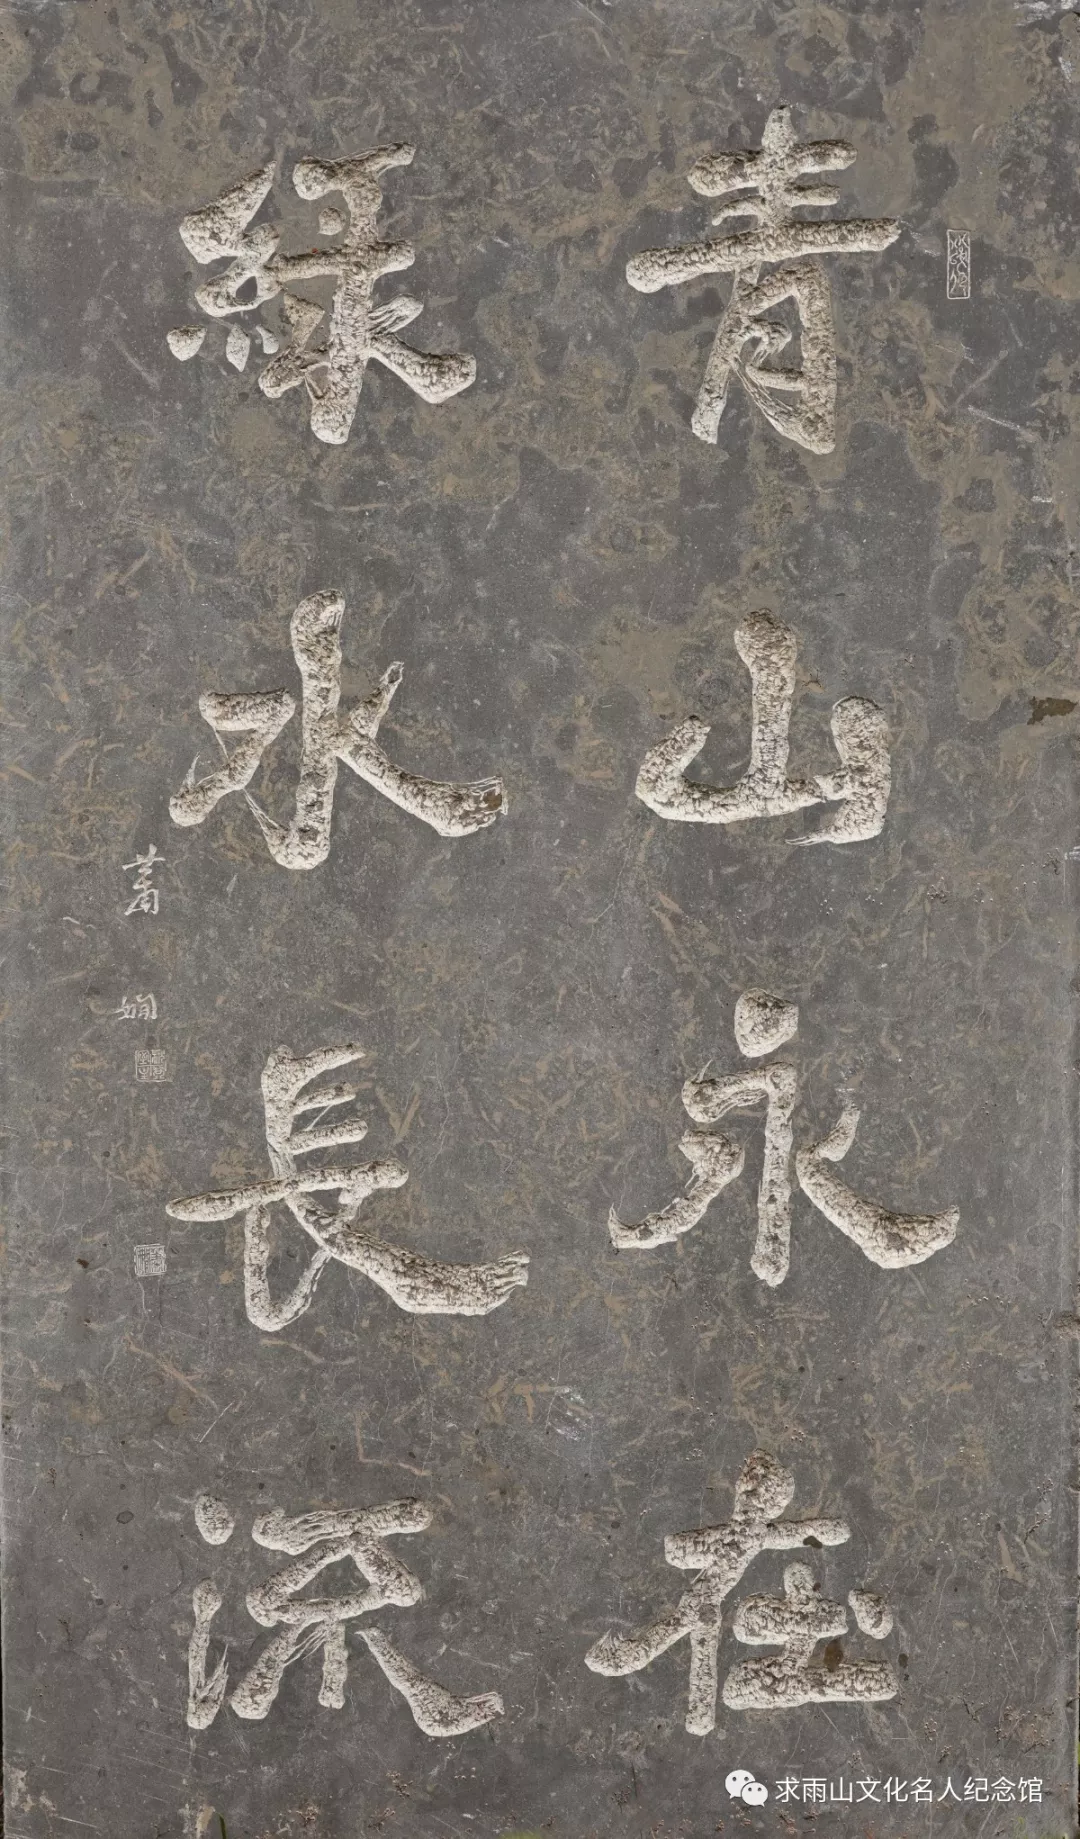 青山永在
綠水長流
蕭嫻
求雨山文化名人纪念馆